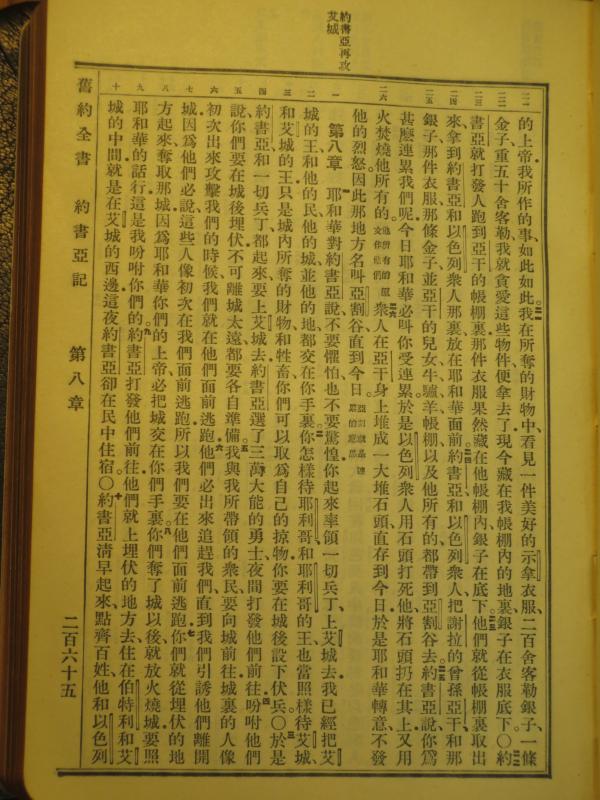 約書亞再攻
艾城
二一 二二 二三 二四 二五 二六 一 二 三 四 五 六 七 八 九 十
的上帝我所作的事、如此如此。二一我在所奪的財物中、看見一件美好的示拿衣服、二百舍客勒銀子、一條
金子、重五十舍客勒、我就貪愛這些物件、便拿去了、現今藏在我帳棚內的地裏、銀子在衣服底下。○二二約
書亞就打發人跑到亞干的帳棚裏、那件衣服果然藏在他帳棚內、銀子在底下。二三他們就從帳棚裏取出
來、拿到約書亞和以色列衆人那裏、放在耶和華面前。二四約書亞和以色列衆人、把謝拉的曾孫亞干、和那
銀子、那件衣服、那條金子、並亞干的兒女、牛、驢、羊、帳棚、以及他所有的、都帶到亞割谷去。二五約書亞說、你爲
甚麼連累我們呢、今日耶和華必叫你受連累、於是以色列衆人用石頭打死他、將石頭扔在其上、又用
火焚燒他所有的。二六衆人在亞干身上堆成一大堆石頭、直存到今日、於是耶和華轉意、不發
他的烈怒、因此那地方名叫亞割谷、直到今日。
第八章 一耶和華對約書亞說、不要懼怕、也不要驚惶、你起來率領一切兵丁、上艾城去、我已經把艾
城的王、和他的民、他的城、並他的地、都交在你手裏。二你怎樣待耶利哥和耶利哥的王、也當照樣待艾城、
和艾城的王、只是城內所奪的財物和牲畜、你們可以取爲自己的掠物、你要在城後設下伏兵。○三於是
約書亞和一切兵丁都起來、要上艾城去、約書亞選了三萬大能的勇士、夜間打發他們前往、四吩咐他們
說、你們要在城後埋伏、不可離城太遠、都要各自準備。五我與我所帶領的衆民、要向城前往、城裏的人像
初次出來攻擊我們的時候、我們就在他們面前逃跑。六他們必出來追趕我們、直到我們引誘他們離開
城、因爲他們必說、這些人像初次在我們面前逃跑、所以我們要在他們面前逃跑。七你們就從埋伏的地
方起來、奪取那城、因爲耶和華你們的上帝必把城交在你們手裏。八你們奪了城以後、就放火燒城、要照
耶和華的話行、這是我吩咐你們的。九約書亞打發他們前往、他們就上埋伏的地方去、住在伯特利和艾
城的中間、就是在艾城的西邊、這夜約書亞卻在民中住宿。○十約書亞清早起來、點齊百姓、他和以色列
舊約全書 約書亞記 第八章 二百六十五